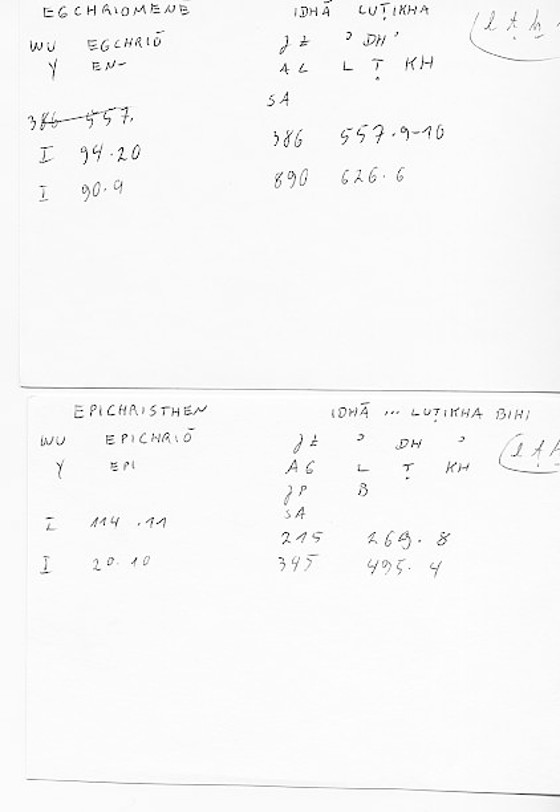 EGCHRIOMENĒ IDHĀ LUṬIKHA
WU EGCHRIŌ
Y EN-
ʾ DHʾ
L Ṭ KH
SA
386 557.
386 557.9-10
I 94.20
890 626.6
I 90.9
EPICHRISTHEN IDHĀ ... LUṬIKHA BIHI
WU EPICHRIŌ
Y EPI
ʾ DH ʾ
AG L Ṭ KH
B
SA
I 114.11
215 269.8
I 20.10
345 495.4